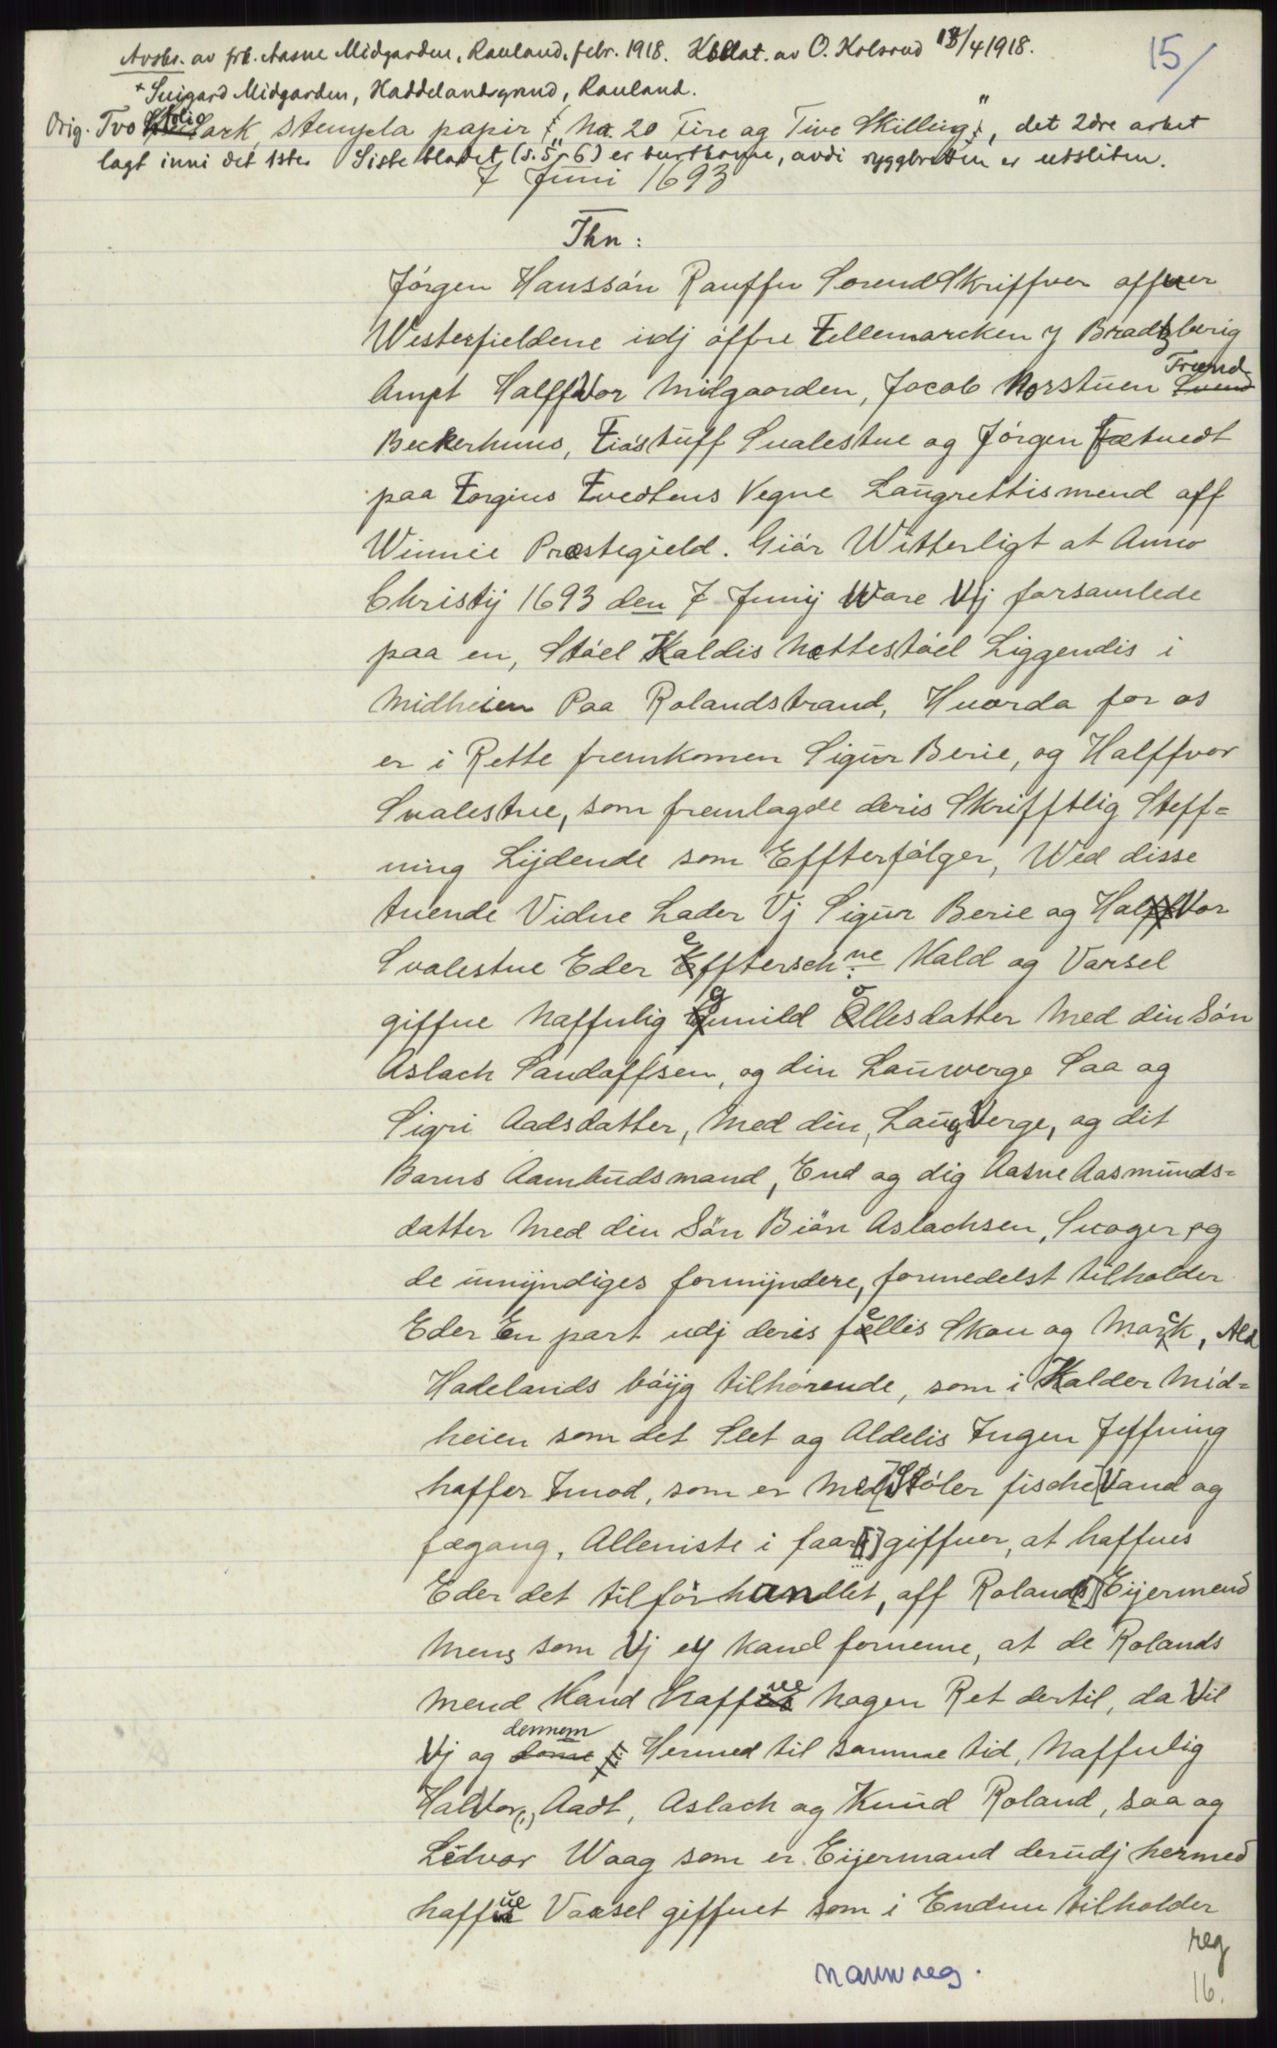 Avskr. av frk. Aasne Midgarden, Rauland, febr. 1918. Kollat. av O. Kolsrud 18/4 1918.
15/
+ Snigard Midgarden, Haddelandsgrend, Rauland.
Orig. Tvo folio ark, stempla papir ("No. 20 Fire og Tive Skilling"), det 2dre arket
lagt inni det 1ste. Siste bladet (s. 5-6) er burtkome, avdi ryggbretten er utsliten.
7 Juni 1693
Thn:
Jörgen Hanssön Rauffn SorendSkriffver offuer
Westerfieldene idj öffre Tellemarcken y Bradtzberig
Ampt Halffvor Midgaarden, Jacob Norstuen Trund
Beckerhuus, Tiöstuff Sualestue og Jörgen Fætuedt
paa Torgius Tvedtens Vegne Laugrettismend aff
Winnie Præstegield. Giör Witterligt at Anno
Christij 1693 den 7 Junij Ware Vij forsamlede
paa en, Stöel Kaldis Nettestöel Liggendis i
Midheien Paa Rolandstrand, Huorda for os
er i Rette fremkomen Sigur Berie, og Halffvor
Sualestue, som fremlagde deris Skrifftlig Steff=
ning Lijdende som Effterfölger, Wed disse
tuende Vidne Lader Vj Sigur Berie og HalVor
Svalestue Eder efftersch:ne Kald og Varsel
giffue Naffnlig gunild ollesdatter Med din Sön
Aslach Sandoffsen, og din Lauwerge Saa og
Sigri Aadsdatter, Med din, LaugVerge, og dit
Barns Aambudsmand, End og dig Aasne Aasmunds=
datter Med din Sön Biön Aslachsen, Svoger og
de umijndiges formijndere, formedelst tilholder
Eder En part udj deris fellis Skou og Marck, Ald
Hadelands böijg tilhörende, som i Kalder Mid=
heien som det Slet og Aldelis Ingen Jeffning
haffer Imod, som er Med Stöler fische Vand og
fægang, Alleniste i faar[i] giffuer, at haffues
Eder det tilforhandlet, aff Roland[s] Eijermend
Mens som Vj ey kand forneme, at de Rolands
mend Kand haffue Nogen Ret dertil, da Vil
Vj og dennem Hermed til samme tid, Naffnlig
Halvor(,) Aadt, Aslach og Knud Roland, saa og
Lidvor Waag som er Eijermand derudj hermed
haffue Varsel giffuet som i Enduu tilholder
reg
navnreg.
16.